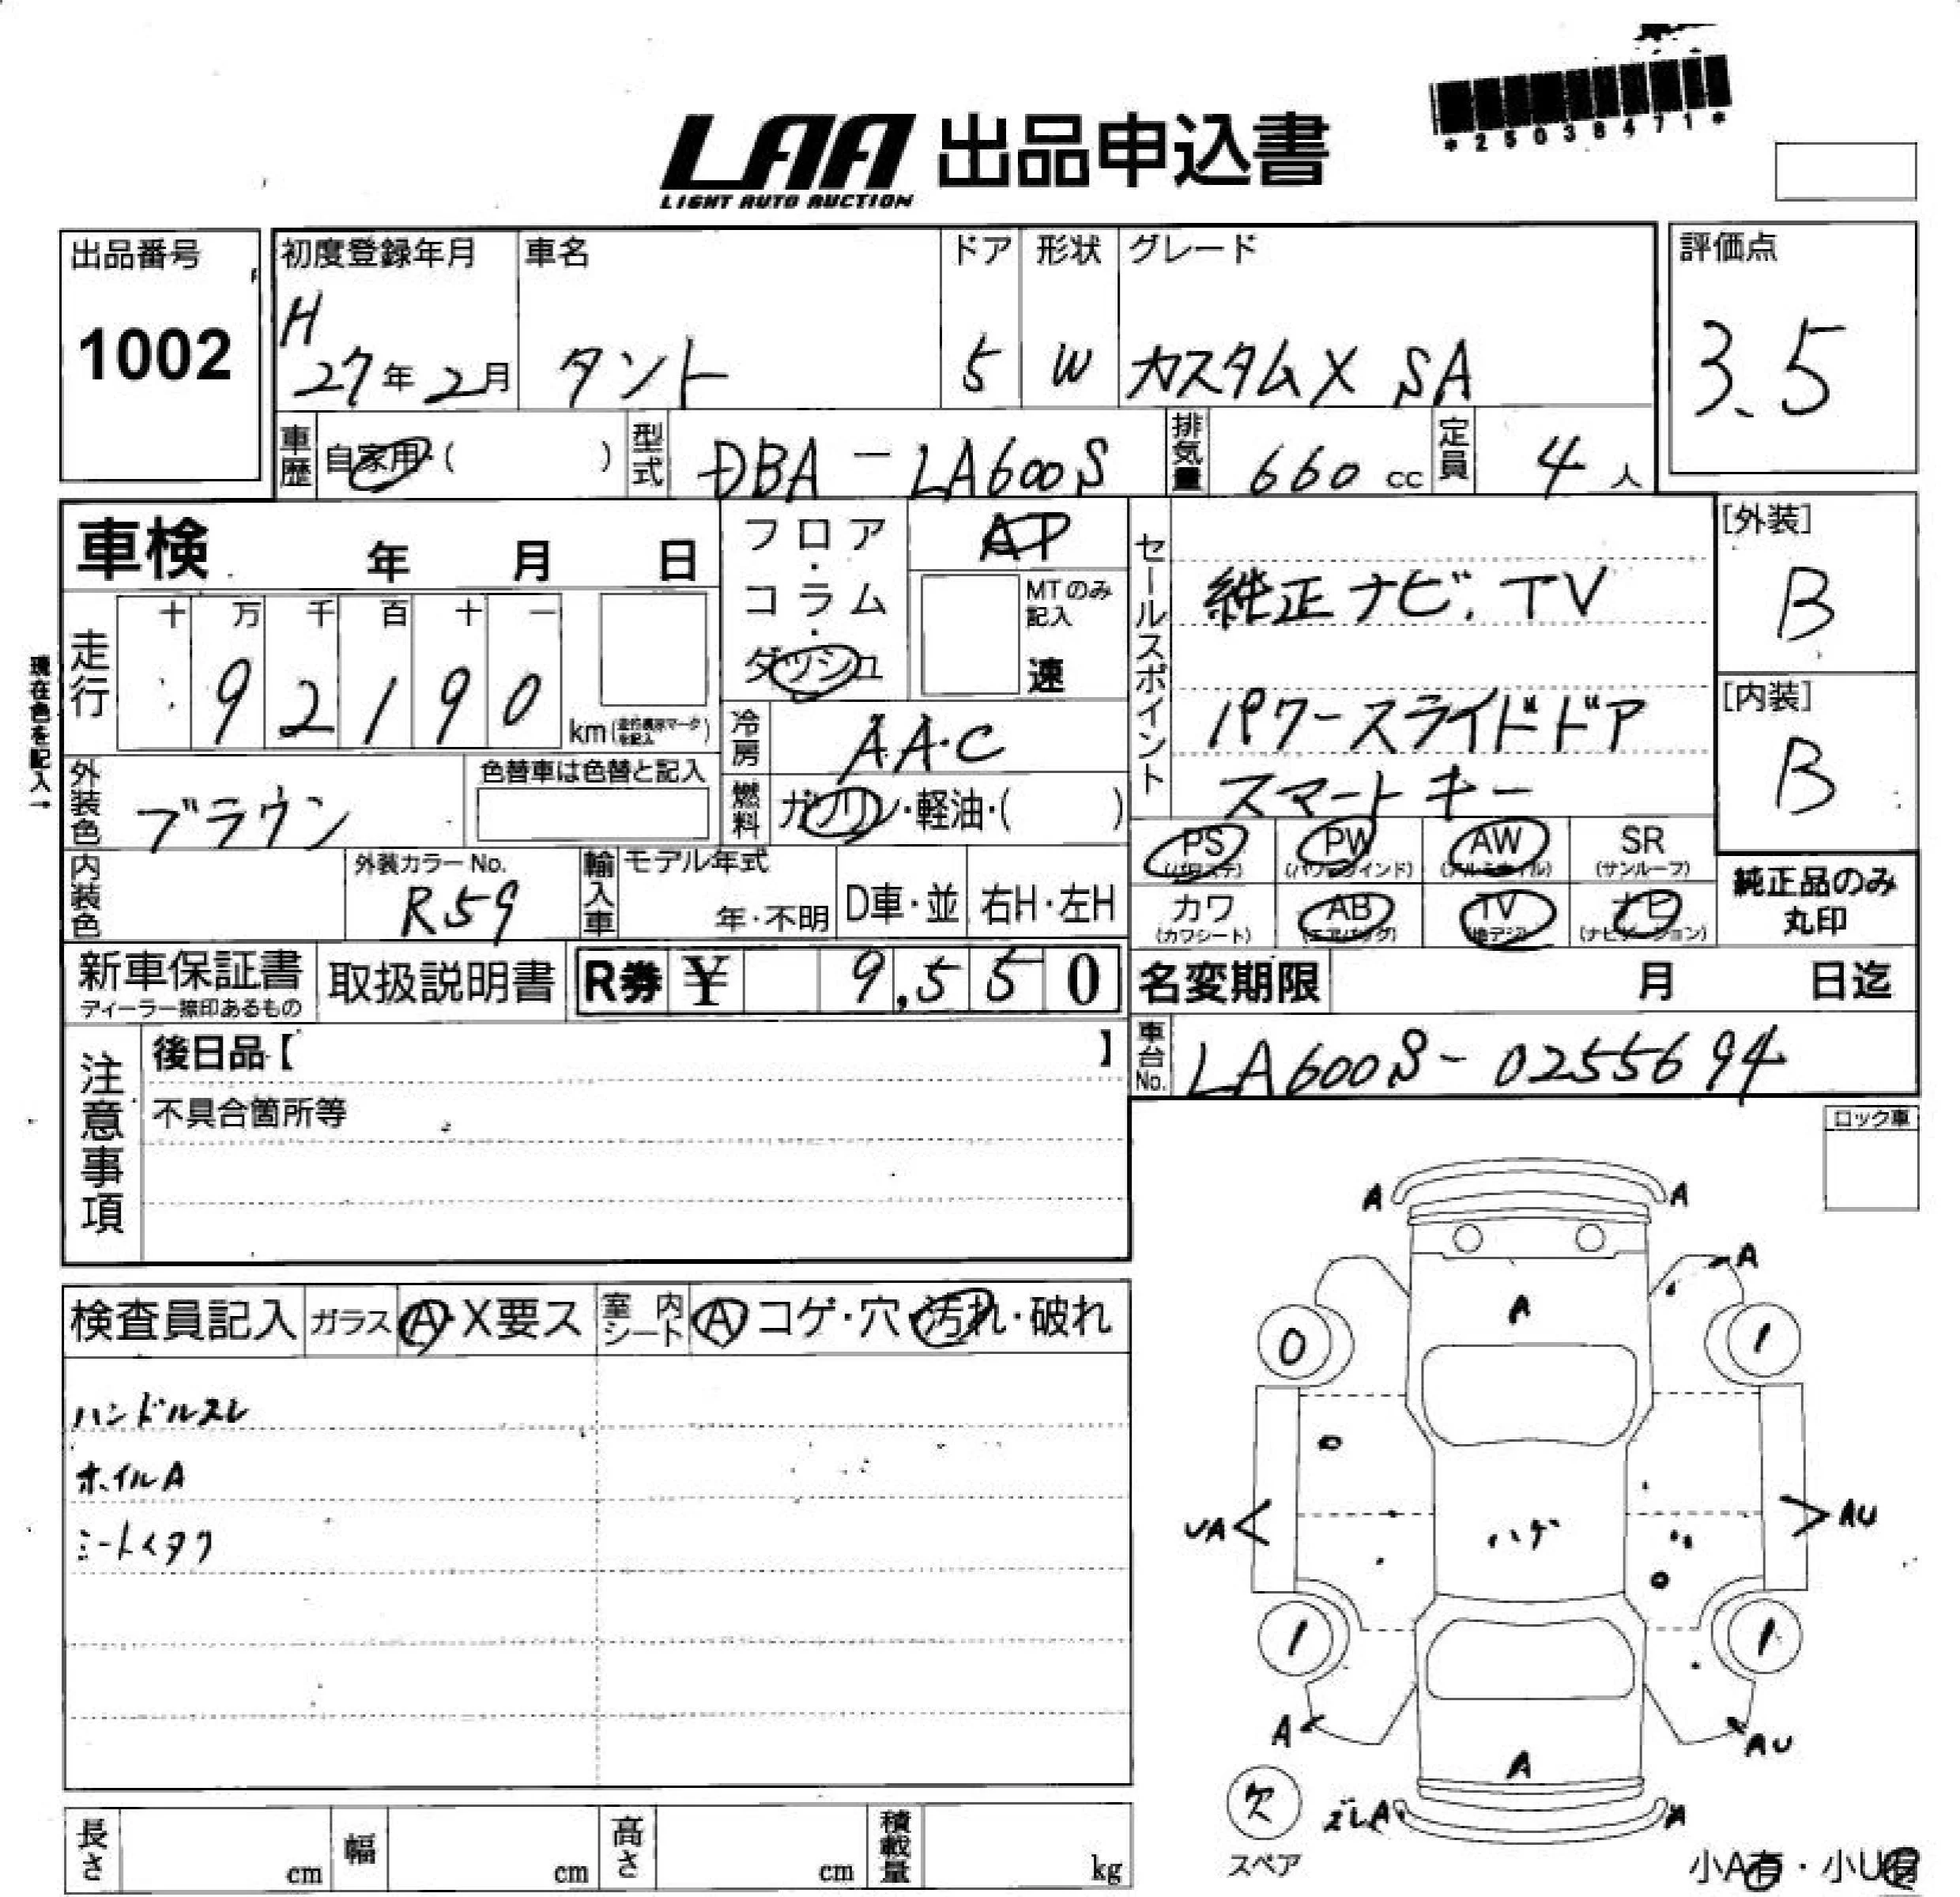 *25038471*
LAA 出品申込書
LIGHT AUTO AUCTION
出品番号
1002
初度登録年月
H
27年2月
車名
タント
ドア
5
形状
W
グレード
カスタムX SA
評価点
3.5
車歴
自家用・( )
型式
DBA-LA600S
排気量
660 cc
定員
4 人
車検 年 月 日
フロア・コラム・ダッシュ
AT
MTのみ記入
速
セールスポイント
純正ナビ.TV
パワースライドドア
スマートキー
[外装]
B
[内装]
B
現在色を記入→
走行
十 万 千 百 十 一
9 2 1 9 0
km(走行表示マークを記入)
冷房
AAC
外装色
ブラウン
色替車は色替と記入
燃料
ガソリン・軽油・( )
PS
(パワステ)
PW
(パワーウインド)
AW
(アルミホイル)
SR
(サンルーフ)
カワ
(カワシート)
AB
(エアバッグ)
TV
(地デジ)
ナビ
(ナビゲーション)
純正品のみ
丸印
内装色
外装カラーNo.
R59
輸入車
モデル年式
年・不明
D車・並
右H・左H
新車保証書
ディーラー捺印あるもの
取扱説明書
R券 ¥ 9,550
名変期限 月 日迄
注意事項
後日品【 】
不具合箇所等
車台No.
LA600S-0255694
ロック車
検査員記入
ガラス
A・X要ス
室内シート
A コゲ・穴・汚れ・破れ
ハンドルスレ
ホイルA
A
A
A
A
0
1
UA
ハゲ
AU
1
1
A
AU
A
欠
スペア
ズレA
A
小A有・小U有
長さ
cm
幅
cm
高さ
cm
積載量
kg